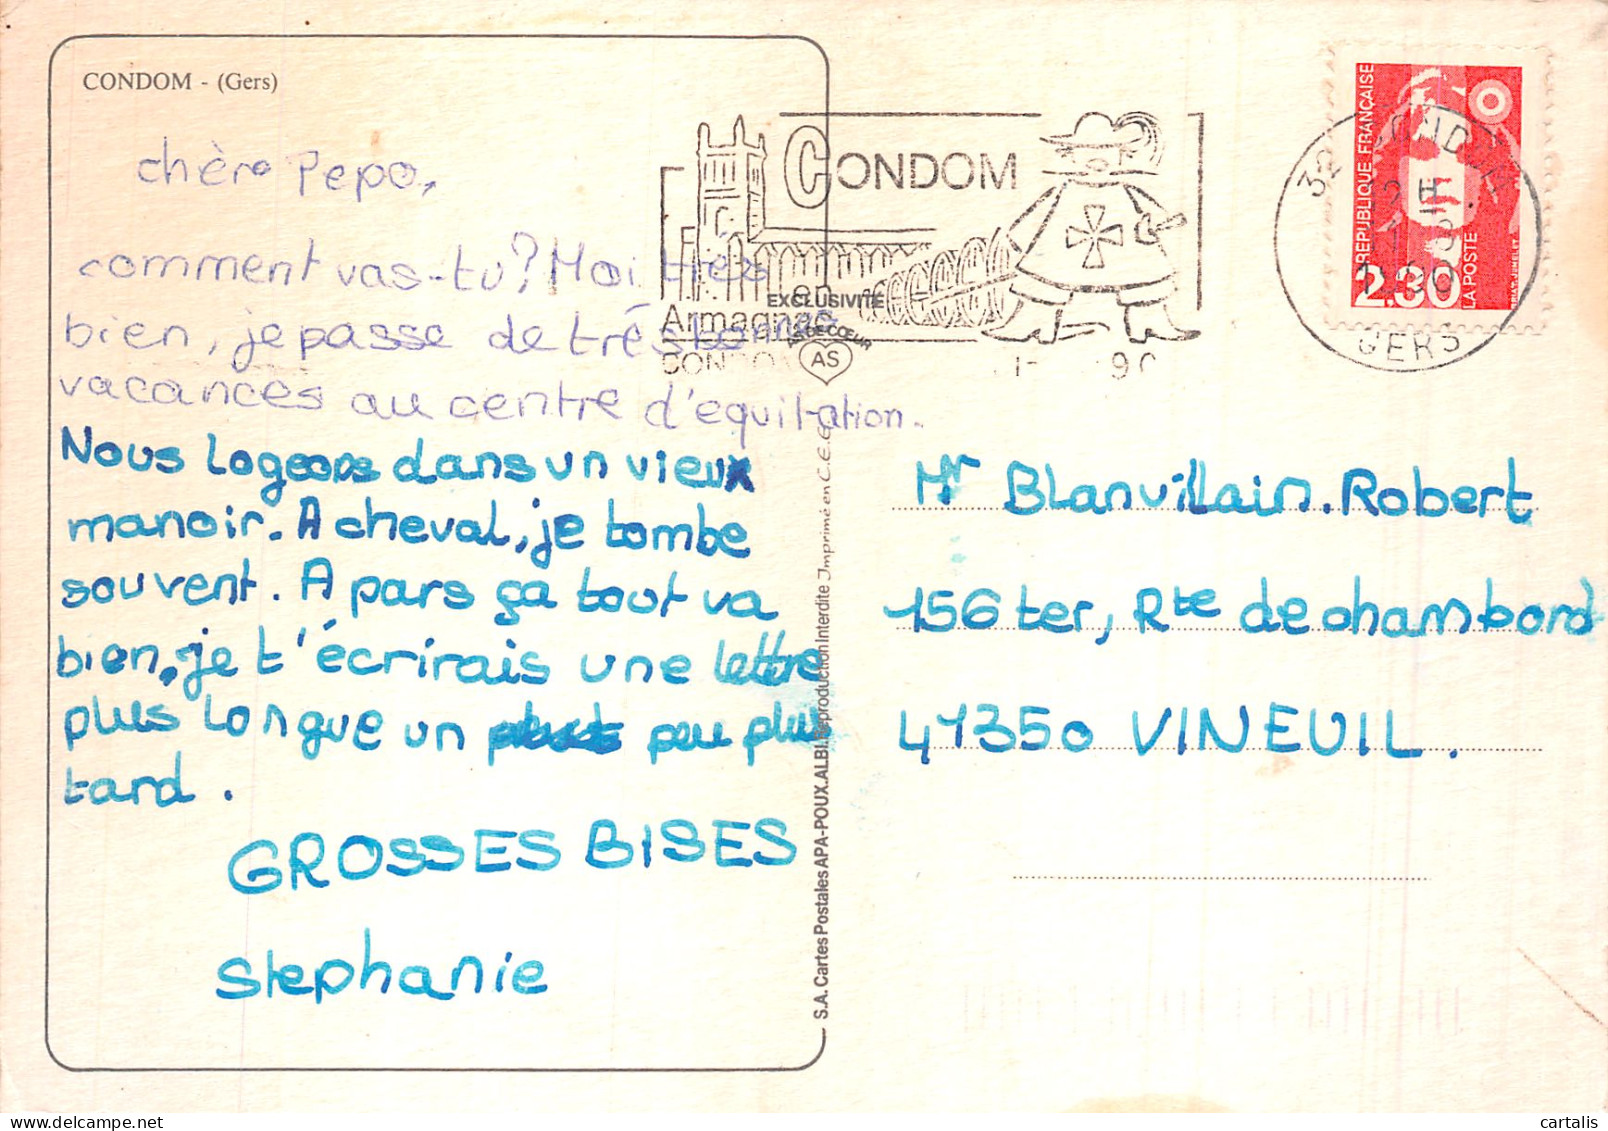 CONDOM - (Gers)
chère Pepo,
comment vas-tu? Moi très
bien, je passe de trés bonnes
vacances au centre d'equitation.
Nous logeons dans un vieux
manoir. A cheval, je tombe
souvent. A pars ça tout va
bien, je t'écrirais une lettre
plus longue un peu plus
tard.
GROSSES BISES
Stephanie
CONDOM
en
Armagnac
EXCLUSIVITÉ
AS DE CŒUR
AS
S.A. Cartes Postales APA-POUX.ALBI. Reproduction Interdite Imprimé en C.E.E.
RÉPUBLIQUE FRANÇAISE
2.30
LA POSTE
32 CONDOM
GERS
Mr Blanvillain.Robert
156 ter, Rte de chambord
41350 VINEUIL.
cartalis